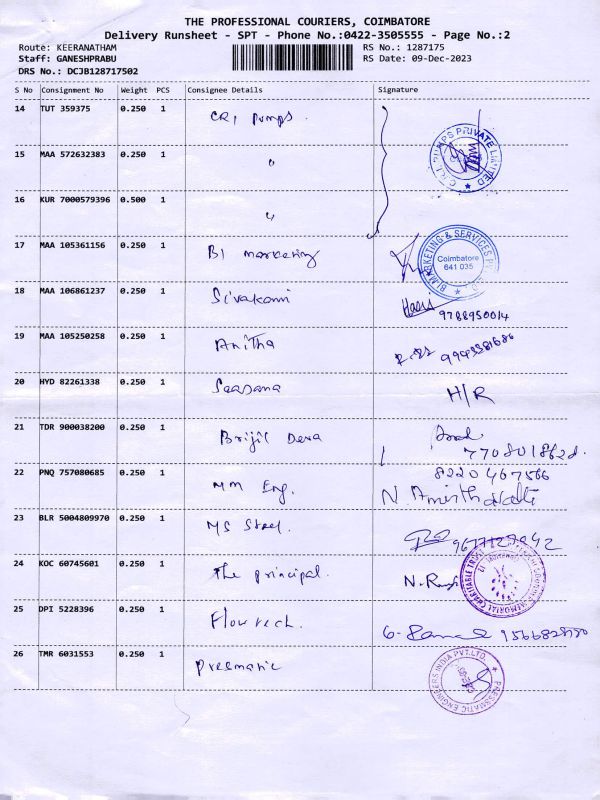 THE PROFESSIONAL COURIERS, COIMBATORE
Delivery Runsheet - SPT - Phone No.:0422-3505555 - Page No.:2
Route: KEERANATHAM RS No.: 1287175
Staff: GANESHPRABU RS Date: 09-Dec-2023
DRS No.: DCJB128717502
S No Consignment No Weight PCS Consignee Details Signature
14 TUT 359375 0.250 1 CRI Pumps.
C.R.I. PUMPS PRIVATE LIMITED
15 MAA 572632383 0.250 1 "
16 KUR 7000579396 0.500 1 "
17 MAA 105361156 0.250 1 BI marketing
BI MARKETING & SERVICES
Coimbatore
641 035
18 MAA 106861237 0.250 1 Sivakami
9788950014
19 MAA 105250258 1 0.250 Anitha
20 HYD 82261338 0.250 1 H/R
21 TDR 900038200 0.250 1 Brijil Deva
8220467566
22 PNQ 757080685 0.250 1 MM Eng.
23 BLR 5004809970 0.250 1 MS Steel.
24 KOC 60745601 0.250 1 The principal.
MEMORIAL CHARITABLE TRUST
25 DPI 5228396 0.250 1 Flowtech.
26 TMR 6031553 0.250 1 Presmatic
PRESSMATIC ENGINEERS INDIA PVT.LTD.